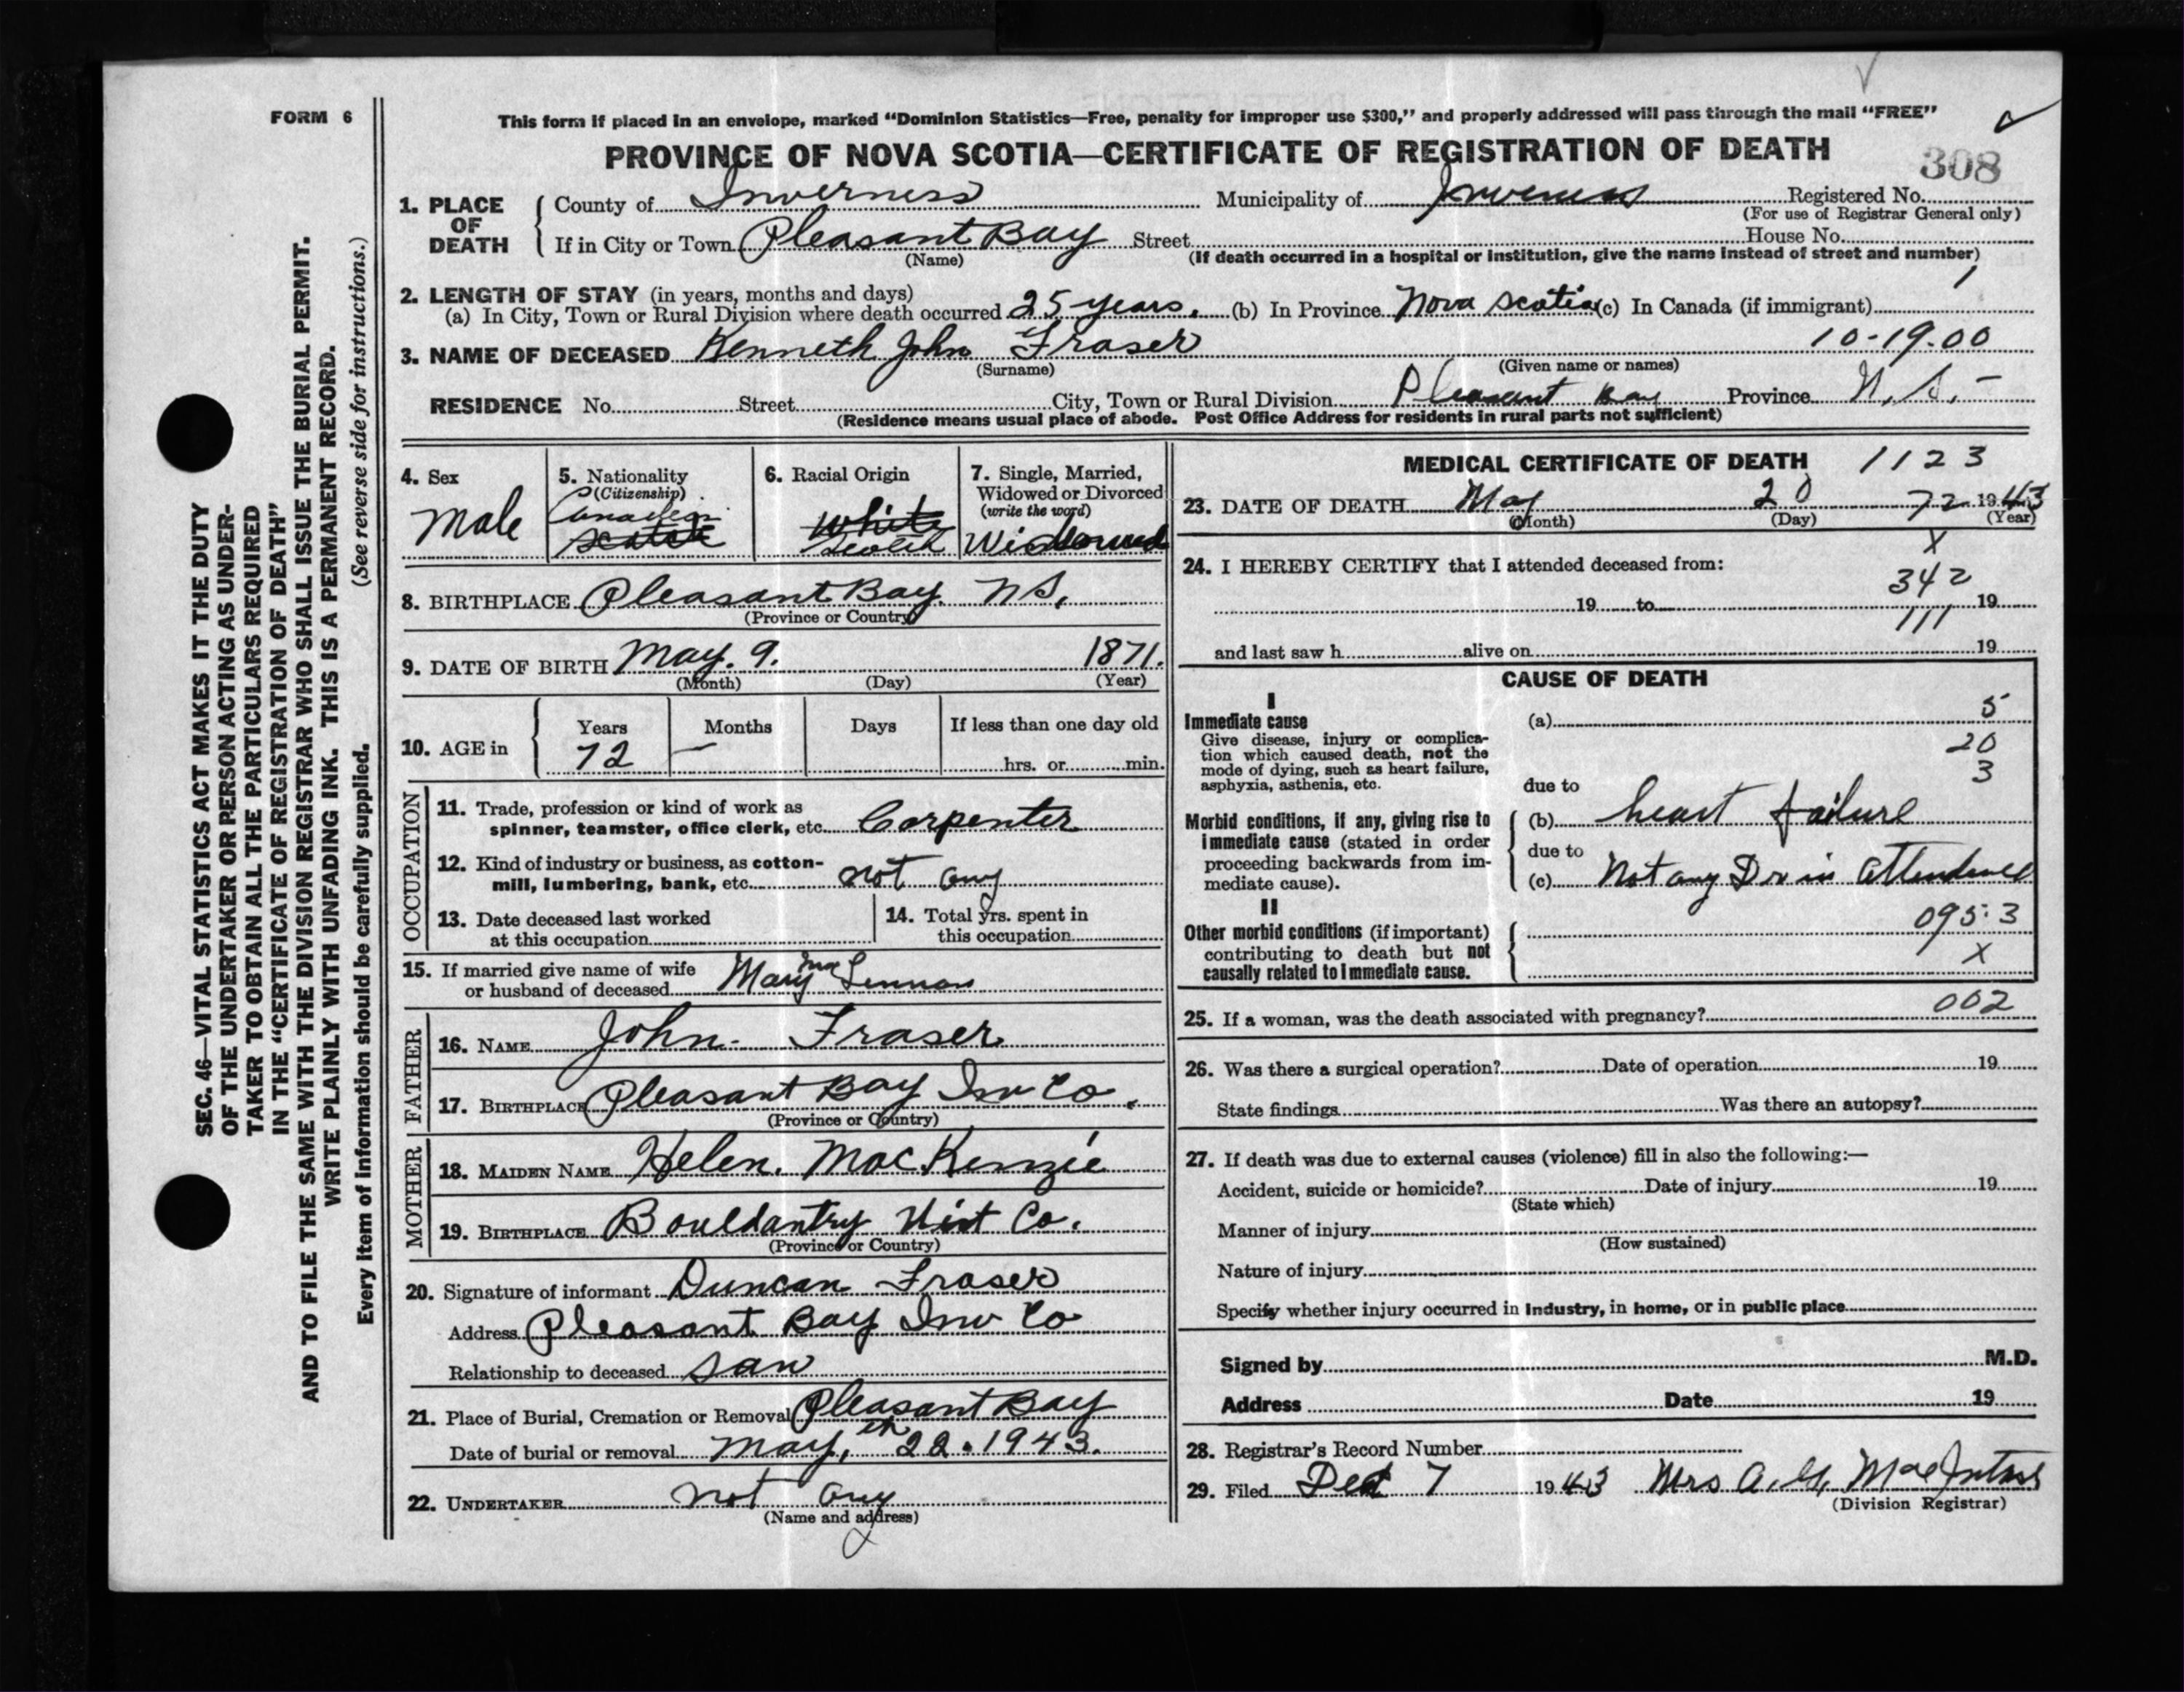 FORM 6
This form if placed in an envelope, marked "Dominion Statistics—Free, penalty for improper use $300," and properly addressed will pass through the mail "FREE"
PROVINCE OF NOVA SCOTIA—CERTIFICATE OF REGISTRATION OF DEATH
308
1. PLACE OF DEATH
County of Inverness Municipality of Inverness Registered No.
(For use of Registrar General only)
If in City or Town Pleasant Bay Street House No.
(Name) (If death occurred in a hospital or institution, give the name instead of street and number)
1
2. LENGTH OF STAY (in years, months and days)
(a) In City, Town or Rural Division where death occurred 25 years. (b) In Province Nova Scotia (c) In Canada (if immigrant)
3. NAME OF DECEASED Kenneth John Fraser 10-19-00
(Surname) (Given name or names)
RESIDENCE No. Street City, Town or Rural Division Pleasant Bay Province N.S.-
(Residence means usual place of abode. Post Office Address for residents in rural parts not sufficient)
4. Sex
Male
5. Nationality
(Citizenship)
Canadian
Scotch
6. Racial Origin
White
Scotch
7. Single, Married,
Widowed or Divorced
(write the word)
Widowed
8. BIRTHPLACE Pleasant Bay. NS.
(Province or Country)
9. DATE OF BIRTH May. 9. 1871.
(Month) (Day) (Year)
10. AGE in
Years Months Days If less than one day old
72 — hrs. or min.
OCCUPATION
11. Trade, profession or kind of work as
spinner, teamster, office clerk, etc. Carpenter
12. Kind of industry or business, as cotton-
mill, lumbering, bank, etc. not any
13. Date deceased last worked
at this occupation
14. Total yrs. spent in
this occupation
15. If married give name of wife
or husband of deceased Mary Mac Lennan
FATHER
16. NAME John. Fraser
17. BIRTHPLACE Pleasant Bay Inv Co.
(Province or Country)
MOTHER
18. MAIDEN NAME Helen. MacKenzie
19. BIRTHPLACE Co.
(Province or Country)
20. Signature of informant Duncan Fraser
Address Pleasant Bay Inv Co
Relationship to deceased san
21. Place of Burial, Cremation or Removal Pleasant Bay
Date of burial or removal May, th 22. 1943.
22. UNDERTAKER not any
(Name and address)
MEDICAL CERTIFICATE OF DEATH 1123
23. DATE OF DEATH May 20 72 1943
(Month) (Day) (Year)
X
24. I HEREBY CERTIFY that I attended deceased from:
342
19 to 19
111
and last saw h alive on 19
CAUSE OF DEATH
I
Immediate cause
Give disease, injury or complica-
tion which caused death, not the
mode of dying, such as heart failure,
asphyxia, asthenia, etc.
(a) 5
20
3
due to
Morbid conditions, if any, giving rise to
immediate cause (stated in order
proceeding backwards from im-
mediate cause).
(b) heart failure
due to
(c) Not any Dr in attendence
II
Other morbid conditions (if important)
contributing to death but not
causally related to immediate cause.
095.3
X
002
25. If a woman, was the death associated with pregnancy?
26. Was there a surgical operation? Date of operation 19
State findings Was there an autopsy?
27. If death was due to external causes (violence) fill in also the following:—
Accident, suicide or homicide? Date of injury 19
(State which)
Manner of injury
(How sustained)
Nature of injury
Specify whether injury occurred in industry, in home, or in public place
Signed by M.D.
Address Date 19
28. Registrar's Record Number
29. Filed Dec 7 1943 Mrs A. MacIntosh
(Division Registrar)
SEC. 46—VITAL STATISTICS ACT MAKES IT THE DUTY
OF THE UNDERTAKER OR PERSON ACTING AS UNDER-
TAKER TO OBTAIN ALL THE PARTICULARS REQUIRED
IN THE "CERTIFICATE OF REGISTRATION OF DEATH"
AND TO FILE THE SAME WITH THE DIVISION REGISTRAR WHO SHALL ISSUE THE BURIAL PERMIT.
WRITE PLAINLY WITH UNFADING INK. THIS IS A PERMANENT RECORD.
Every item of information should be carefully supplied. (See reverse side for instructions.)